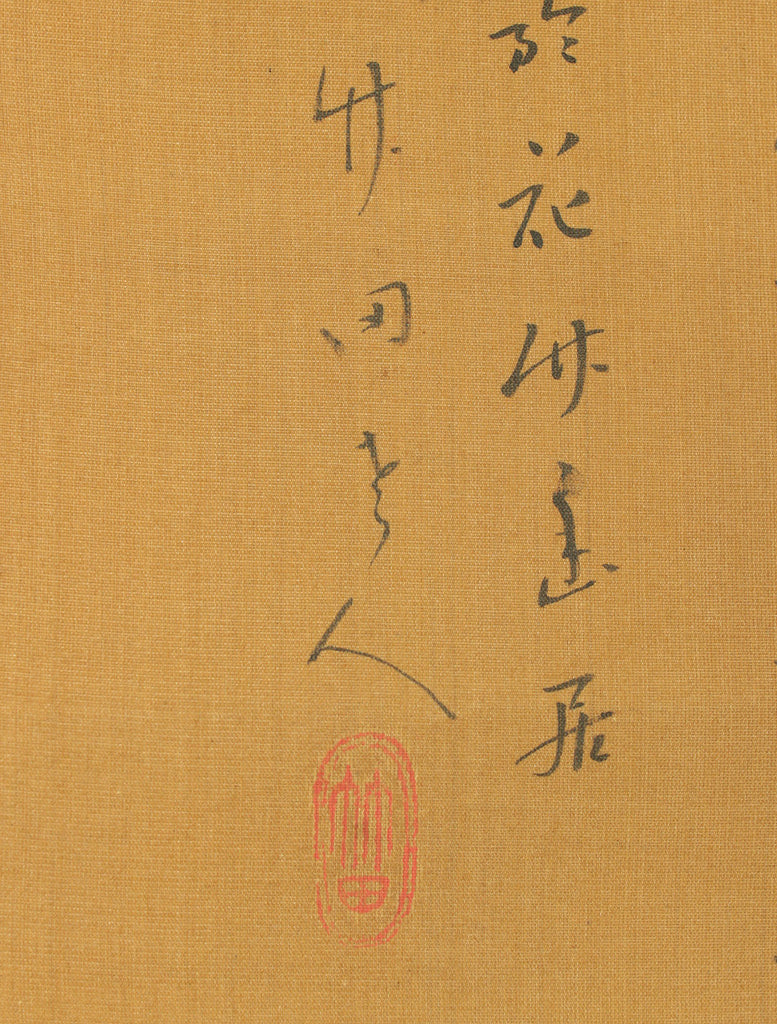 於花竹幽居
竹田老人
竹田